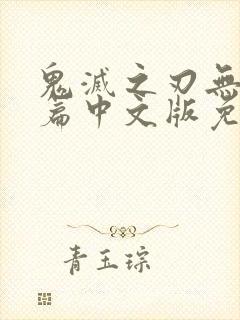 鬼滅之刃無
篇中文版免
青玉琮